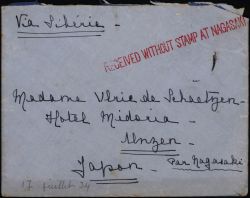 Via Sibérie -
RECEIVED WITHOUT STAMP AT NAGASAKI
Madame Ulric de Schaetzen
Hotel Midoria -
Unzen -
Par Nagasaki
Japon -
17 juillet 24